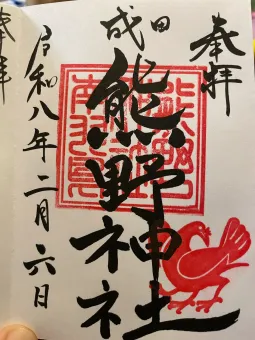 奉拝
成田
熊野神社
令和八年二月六日
奉拝